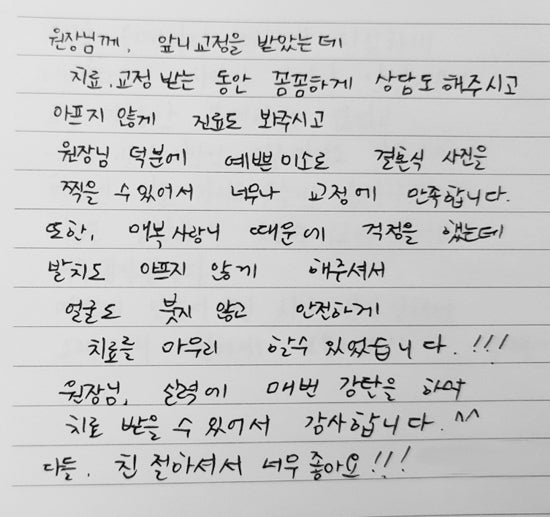 원장님께, 앞니교정을 받았는데
치료.교정 받는 동안 꼼꼼하게 상담도 해주시고
아프지 않게 진료도 봐주시고
원장님 덕분에 예쁜미소로 결혼식 사진을
찍을 수 있어서 너무나 교정에 만족합니다.
또한, 매복 사랑니 때문에 걱정을 했는데
발치도 아프지 않게 해주셔서
얼굴도 붓지 않고 안전하게
치료를 마무리 할수 있었습니다.!!!
원장님, 실력에 매번 감탄을 하며
치료 받을 수 있어서 감사합니다.^^
다들. 친절하셔서 너무 좋아요!!!